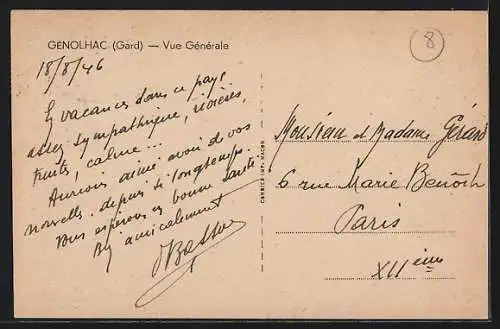 GÉNOLHAC (Gard) — Vue Générale
8
18/8/46
En vacances dans ce pays
assez sympathique, rivières,
truites, calme...
Aurions aimé avoir de vos
nouvelles depuis si longtemps.
Vous espérons en bonne santé
Bien amicalement
CARRIER IMP. MACON
Monsieur et Madame Gérard
6 rue Marie Benoist
Paris
XIIème